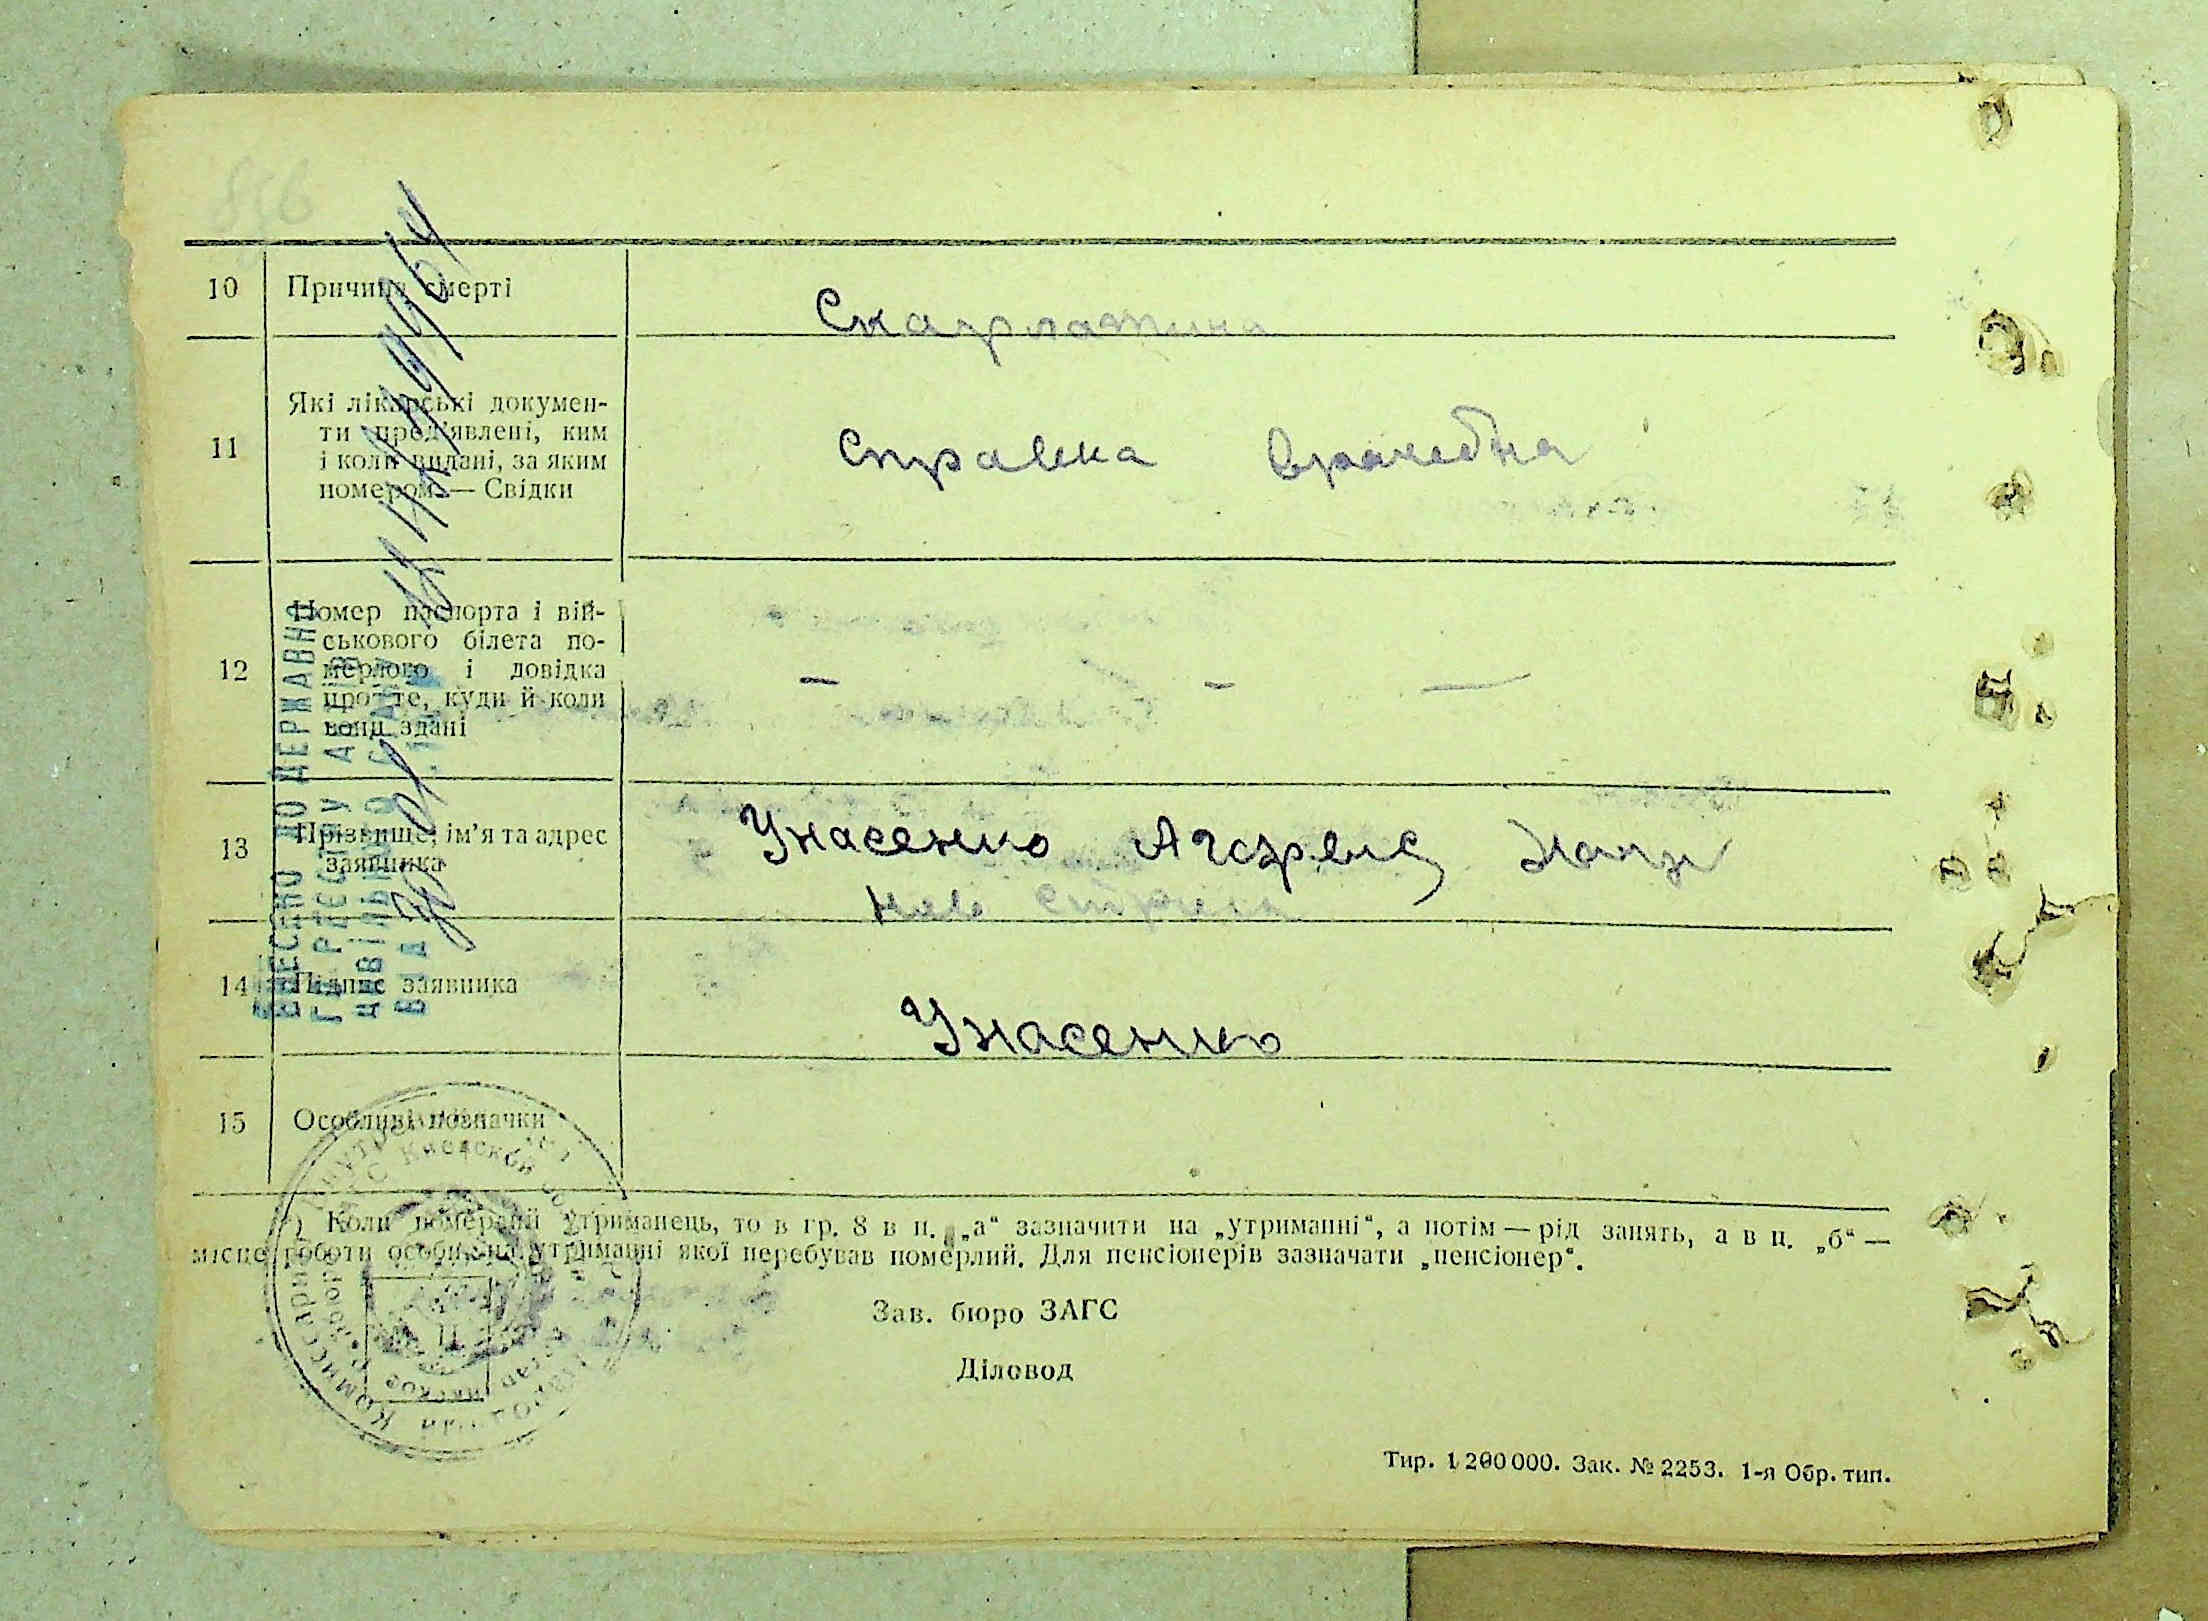 10 Причина смерті Скарлатина
11 Які лікарські докумен-
ти пред'явлені, ким
і коли видані, за яким
номером — Свідки
Справка Врачебна
12 Номер паспорта і вій-
ськового білета по-
мерлого і довідка
про те, куди й коли
вони здані
— — —
13 Прізвище, ім'я та адрес
заявника
Унасенко
14 Підпис заявника
Унасенко
15 Особливі позначки
*) Коли померлий утриманець, то в гр. 8 в п. „а“ зазначити на „утриманні“, а потім — рід занять, а в п. „б“ —
місце роботи особи, на утриманні якої перебував померлий. Для пенсіонерів зазначати „пенсіонер“.
Зав. бюро ЗАГС
Діловод
Тир. 1 200 000. Зак. № 2253. 1-я Обр. тип.
ВНЕСЕНО ДО ДЕРЖАВНО
ГО РЕЄСТРУ АКТІВ
ЦИВІЛЬНОГО СТАНУ